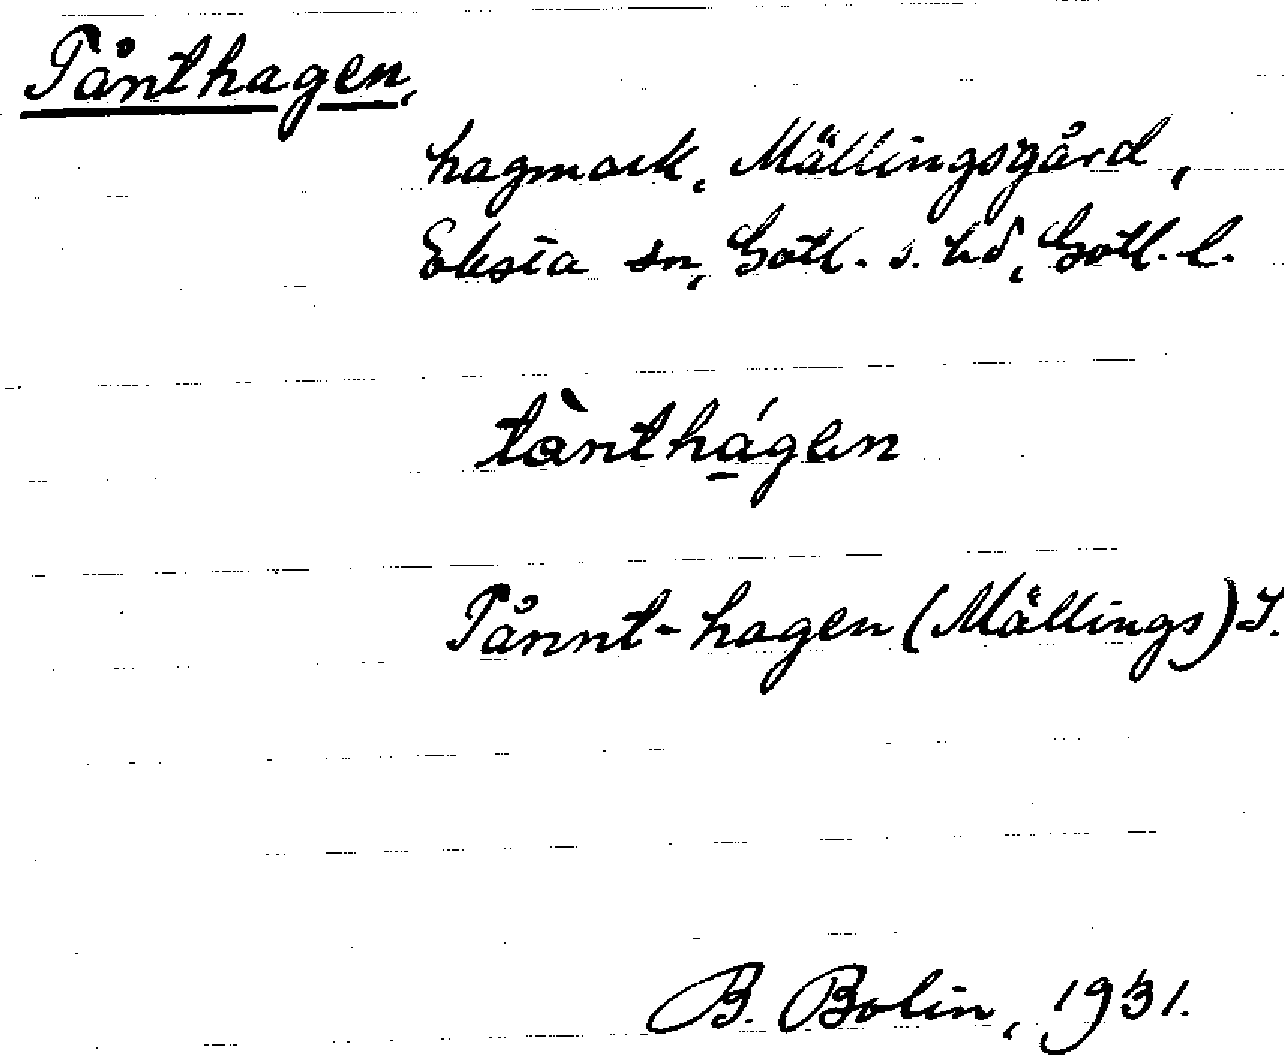 Tånthagen,
hagmark, Mällingsgård,
Eksta sn, Gotl. s. hd, Gotl. l.
tànthágen
Tånnt-hagen (Mällings) J.
B. Bolin, 1931.